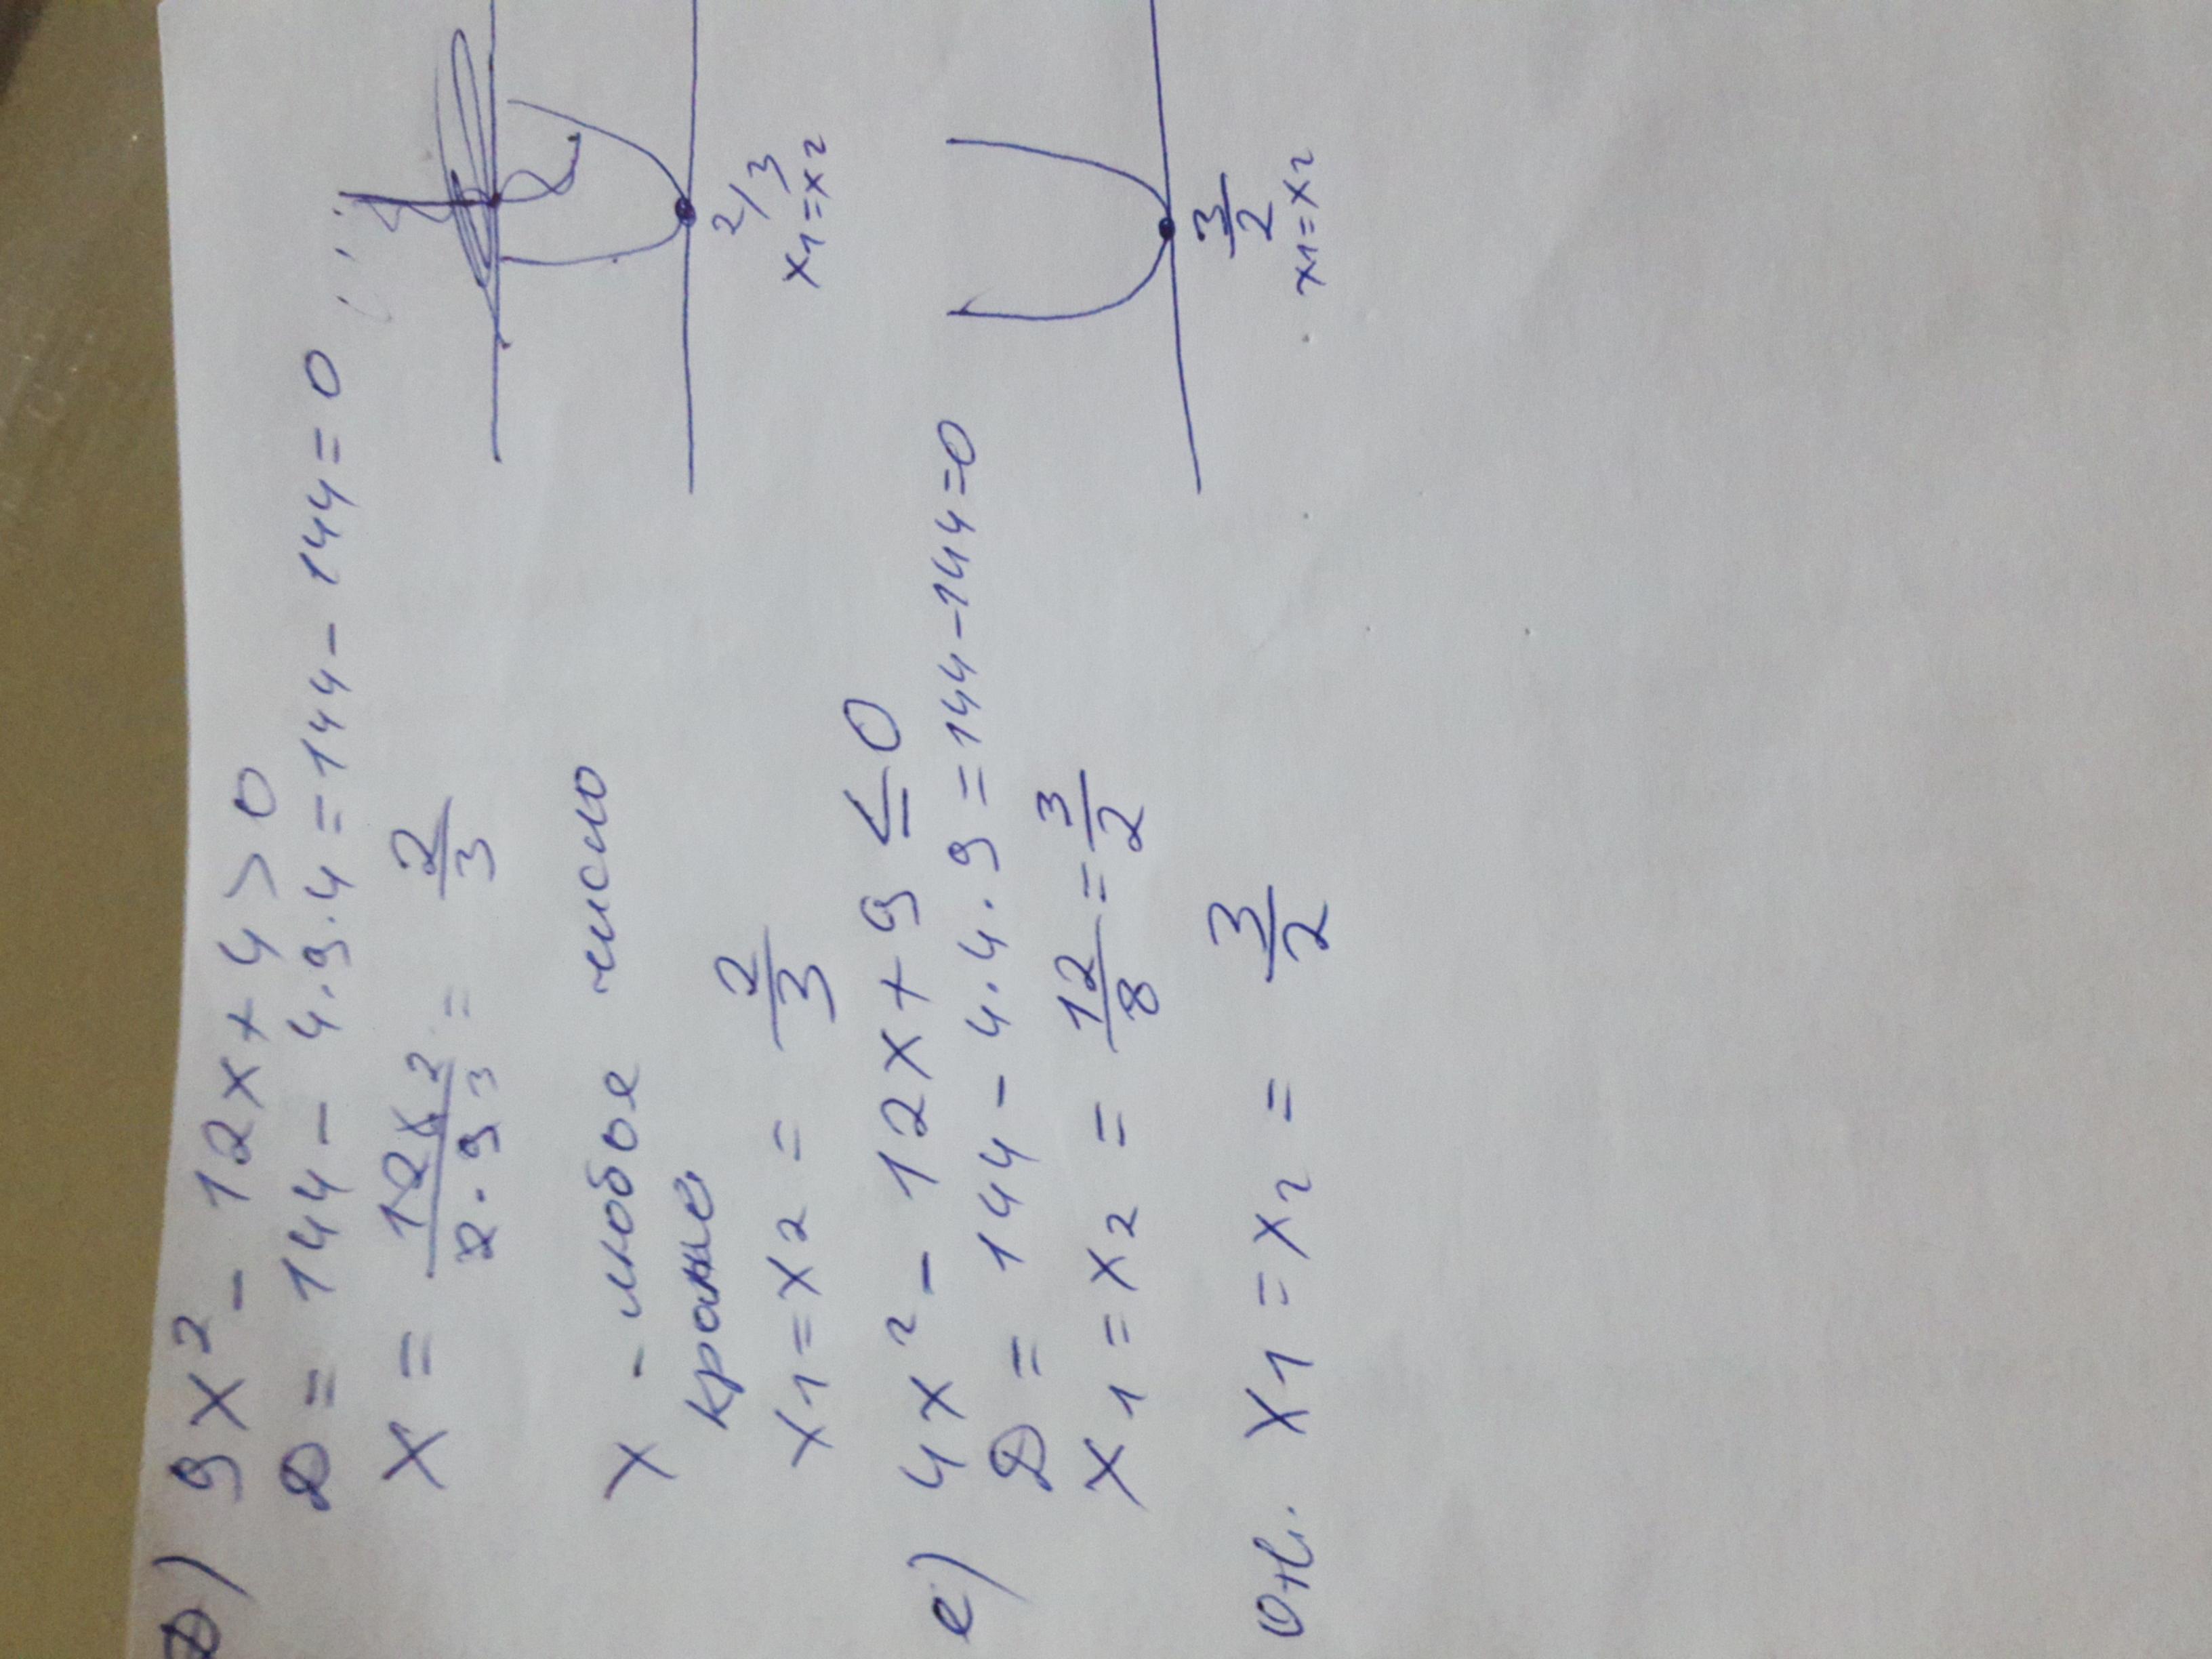 д) 9x² - 12x + 4 > 0
D = 144 - 4·9·4 = 144 - 144 = 0
x = 12 2 / 2·9 3 = 2/3
x - любое число
кроме
x1 = x2 = 2/3
2/3
x1 = x2
е) 4x² - 12x + 9 ≤ 0
D = 144 - 4·4·9 = 144 - 144 = 0
x1 = x2 = 12/8 = 3/2
Отв. x1 = x2 = 3/2
3/2
x1 = x2